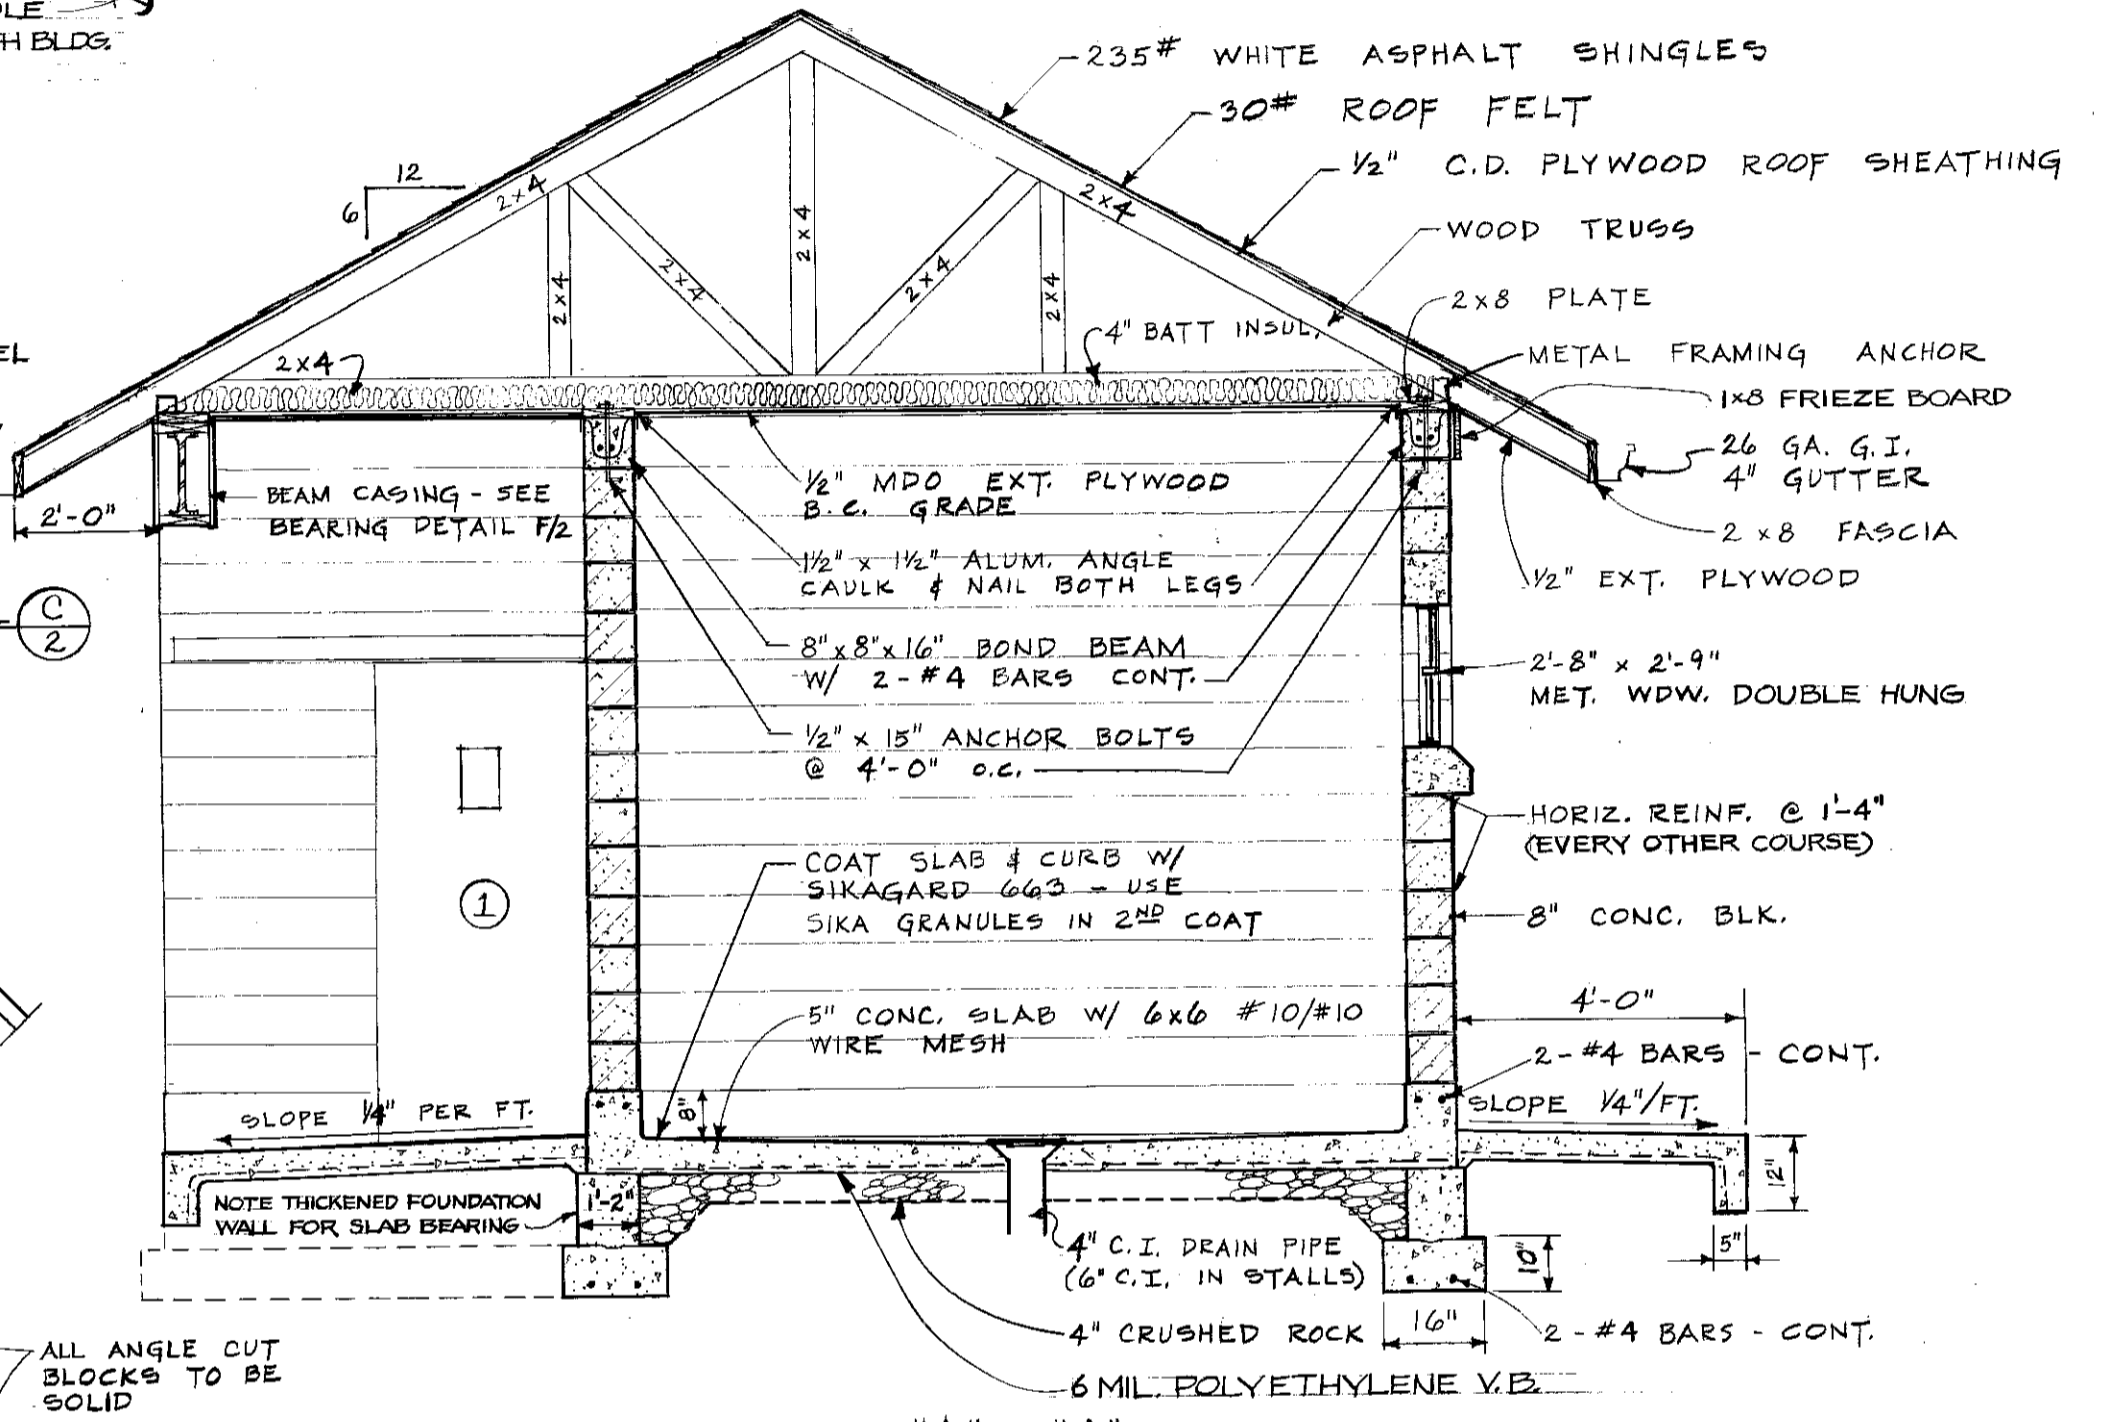 H BLDG.
235# WHITE ASPHALT SHINGLES
30# ROOF FELT
1/2" C.D. PLYWOOD ROOF SHEATHING
WOOD TRUSS
2x8 PLATE
METAL FRAMING ANCHOR
1x8 FRIEZE BOARD
26 GA. G.I.
4" GUTTER
2 x8 FASCIA
1/2" EXT. PLYWOOD
12
6
2x4
2x4
2x4
2x4
2x4
2x4
2x4
2x4
4" BATT INSUL.
EL
2'-0"
BEAM CASING - SEE
BEARING DETAIL F/2
C
2
1/2" MDO EXT. PLYWOOD
B.C. GRADE
1 1/2" x 1 1/2" ALUM. ANGLE
CAULK & NAIL BOTH LEGS
8"x8"x16" BOND BEAM
W/ 2-#4 BARS CONT.
1/2" x 15" ANCHOR BOLTS
@ 4'-0" O.C.
2'-8" x 2'-9"
MET. WDW. DOUBLE HUNG
HORIZ. REINF. @ 1'-4"
(EVERY OTHER COURSE)
8" CONC. BLK.
1
COAT SLAB & CURB W/
SIKAGARD 663 - USE
SIKA GRANULES IN 2ND COAT
5" CONC. SLAB W/ 6x6 #10/#10
WIRE MESH
4'-0"
2-#4 BARS - CONT.
SLOPE 1/4"/FT.
SLOPE 1/4" PER FT.
8"
12"
5"
NOTE THICKENED FOUNDATION
WALL FOR SLAB BEARING
1'-2"
4" C.I. DRAIN PIPE
(6" C.I. IN STALLS)
10"
16"
4" CRUSHED ROCK
2-#4 BARS - CONT.
6 MIL. POLYETHYLENE V.B.
ALL ANGLE CUT
BLOCKS TO BE
SOLID